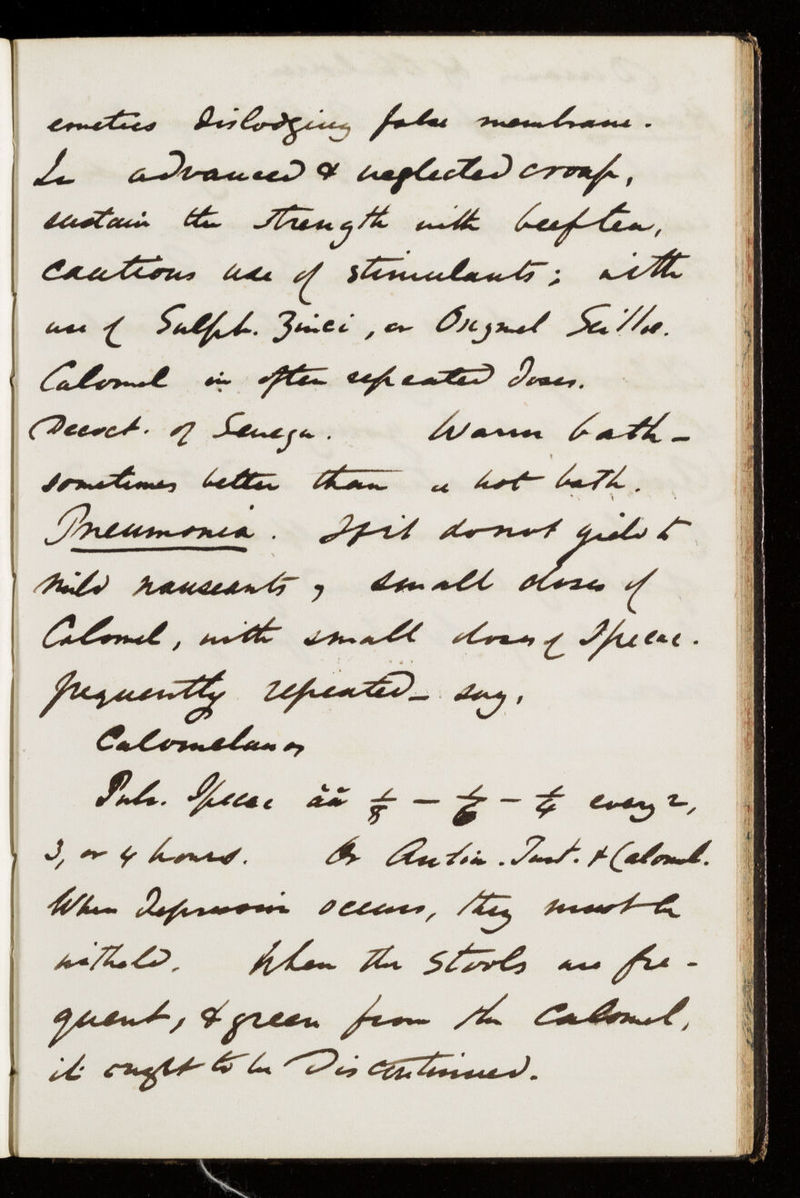 emetics dislodging false membrane.
In advanced & neglected croup,
sustain the strength with beef tea,
cautious use of stimulants; with
use of Sulph. Zinci, or Oxymel Scillae.
Calomel in often repeated doses.
Decoct. of Senega. Warm bath -
sometimes better than a hot bath.
Pneumonia. If it do not yield to
mild nauseants, small doses of
Calomel, with small doses of Ipecac.
frequently repeated - say,
Calomelanos
Pulv. Ipecac āā 1/8 - 1/6 - 1/4 every 2,
3, or 4 hours. Or Antim. Tart. & Calomel.
When depression occurs, they must be
witheld. When the stools are fre-
quent, & green from the Calomel,
it ought to be discontinued.